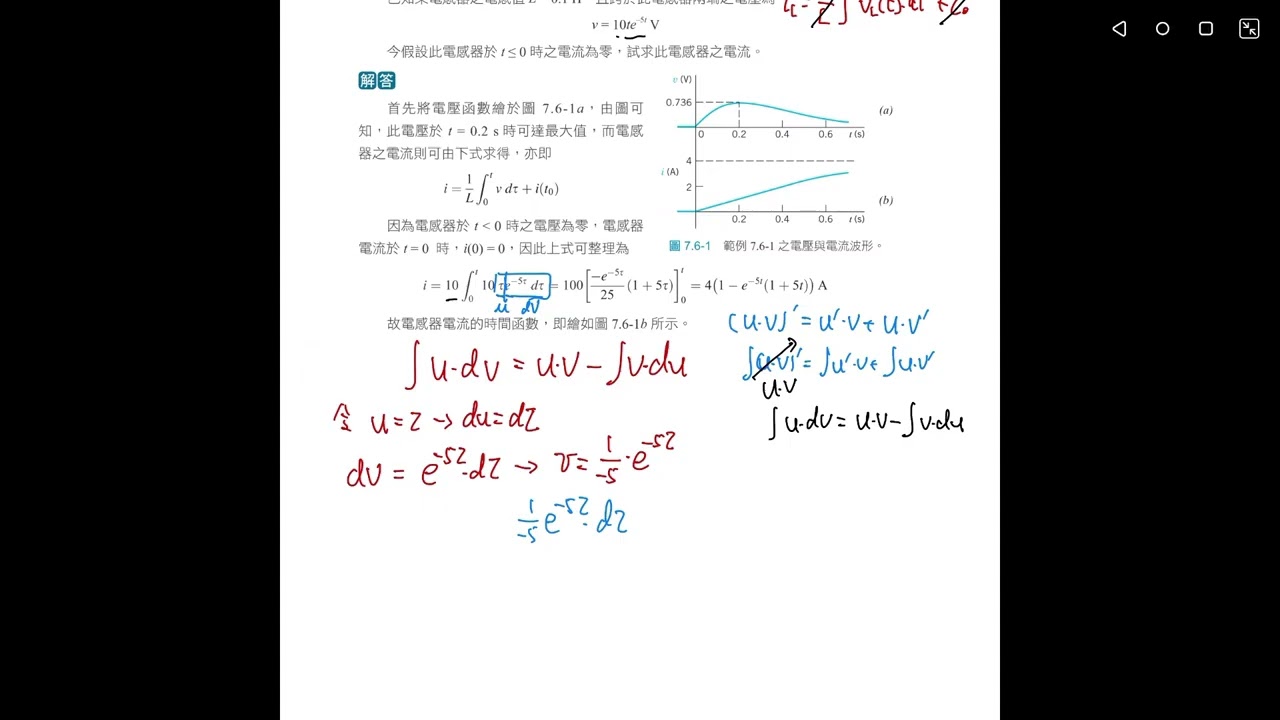 v = 10te⁻⁵ᵗ V
今假設此電感器於 t ≤ 0 時之電流為零，試求此電感器之電流。
解答
首先將電壓函數繪於圖 7.6-1a，由圖可
知，此電壓於 t = 0.2 s 時可達最大值，而電感
器之電流則可由下式求得，亦即
i = 1/L ∫₀ᵗ v dτ + i(t₀)
因為電感器於 t < 0 時之電壓為零，電感器
電流於 t = 0 時，i(0) = 0，因此上式可整理為
v (V)
0.736
0 0.2 0.4 0.6 t (s)
(a)
4
i (A)
2
0.2 0.4 0.6 t (s)
(b)
圖 7.6-1 範例 7.6-1 之電壓與電流波形。
i = 10 ∫₀ᵗ 10τe⁻⁵τ dτ = 100 [ −e⁻⁵τ/25 (1 + 5τ) ]₀ᵗ = 4(1 − e⁻⁵ᵗ(1 + 5t)) A
u dv
故電感器電流的時間函數，即繪如圖 7.6-1b 所示。
(u·v)' = u'·v + u·v'
∫u·dv = u·v − ∫v·du
∫(u·v)' = ∫u'·v + ∫u·v'
u·v
令 u = τ → du = dτ
∫u·dv = u·v − ∫v·du
dv = e⁻⁵τ·dτ → v = 1/−5 · e⁻⁵τ
1/−5 e⁻⁵τ · dτ